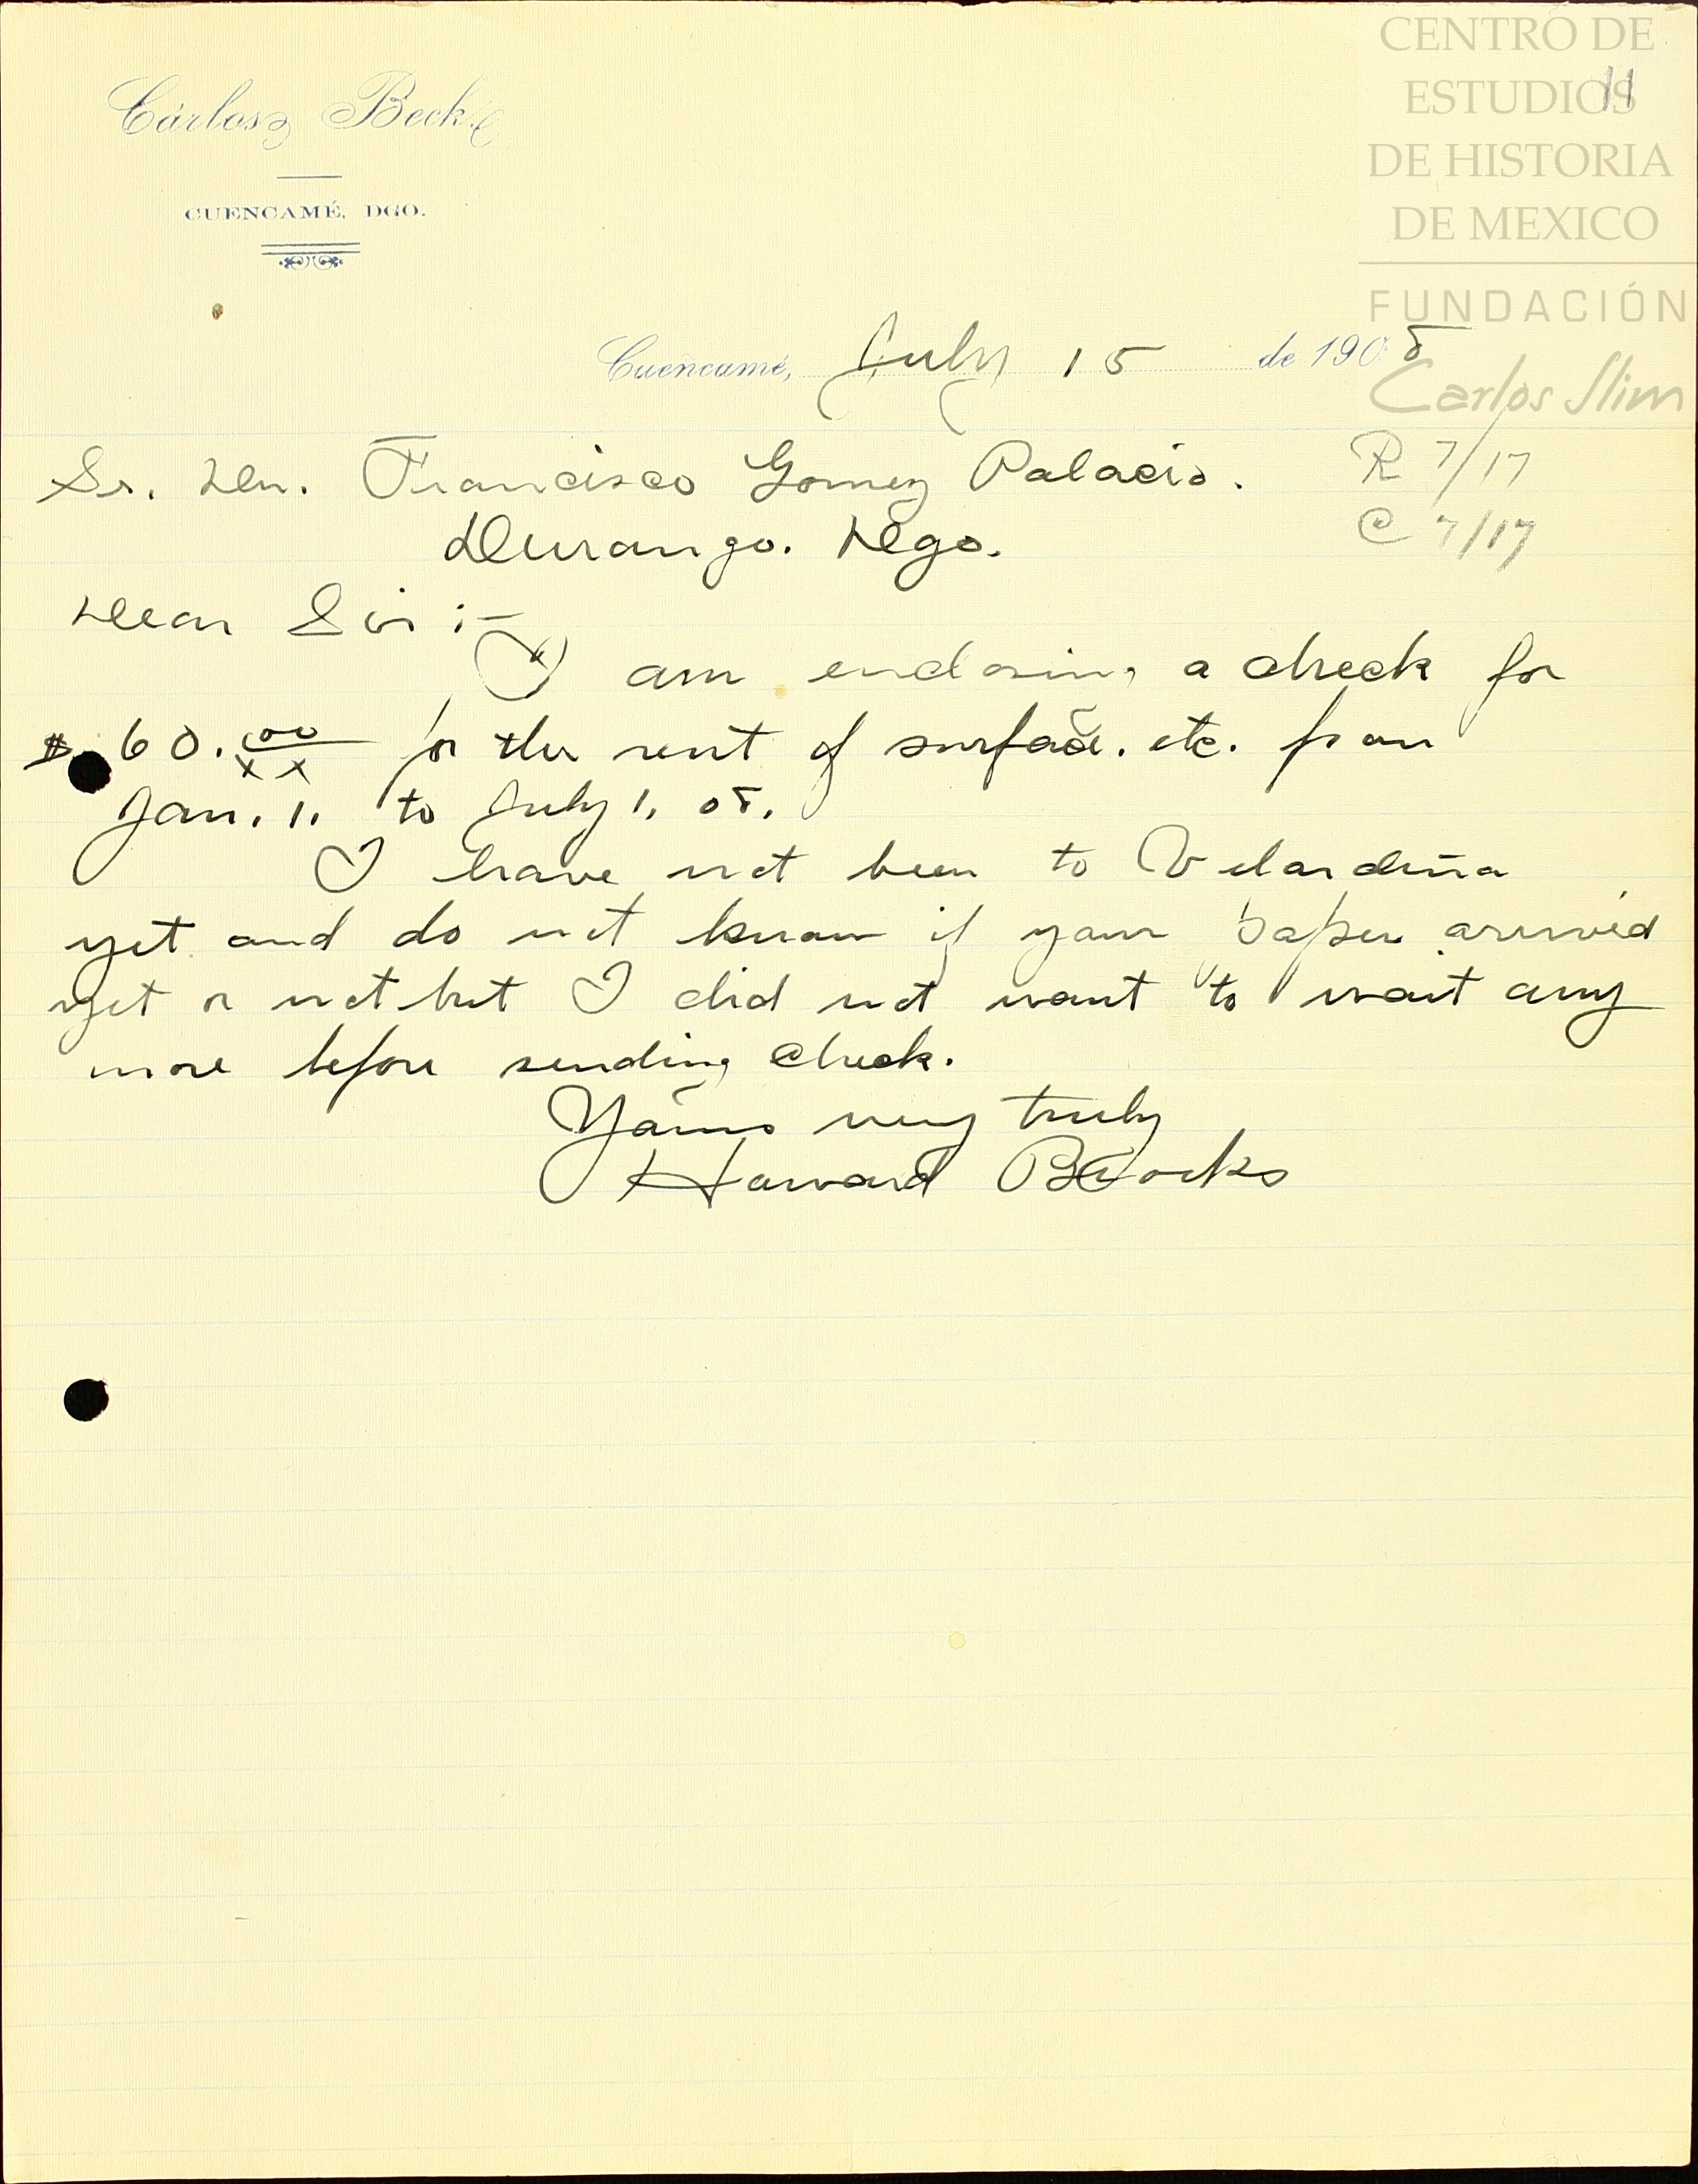 Cárlos Beck
CUENCAMÉ, DGO.
CENTRO DE
ESTUDIOS
DE HISTORIA
DE MEXICO
FUNDACIÓN
Carlos Slim
11
Cuencamé, July 15 de 1908
Sr. Dn. Francisco Gomez Palacio.
Durango. Dgo.
R 7/17
C 7/17
Dear Sir:-
I am enclosing a check for
$60.00/xx for the rent of surface. etc. from
Jan. 1. to July 1, 08.
I have not been to Velardeña
yet and do not know if your paper arrived
yet or not but I did not want to wait any
more before sending check.
Yours very truly
Howard